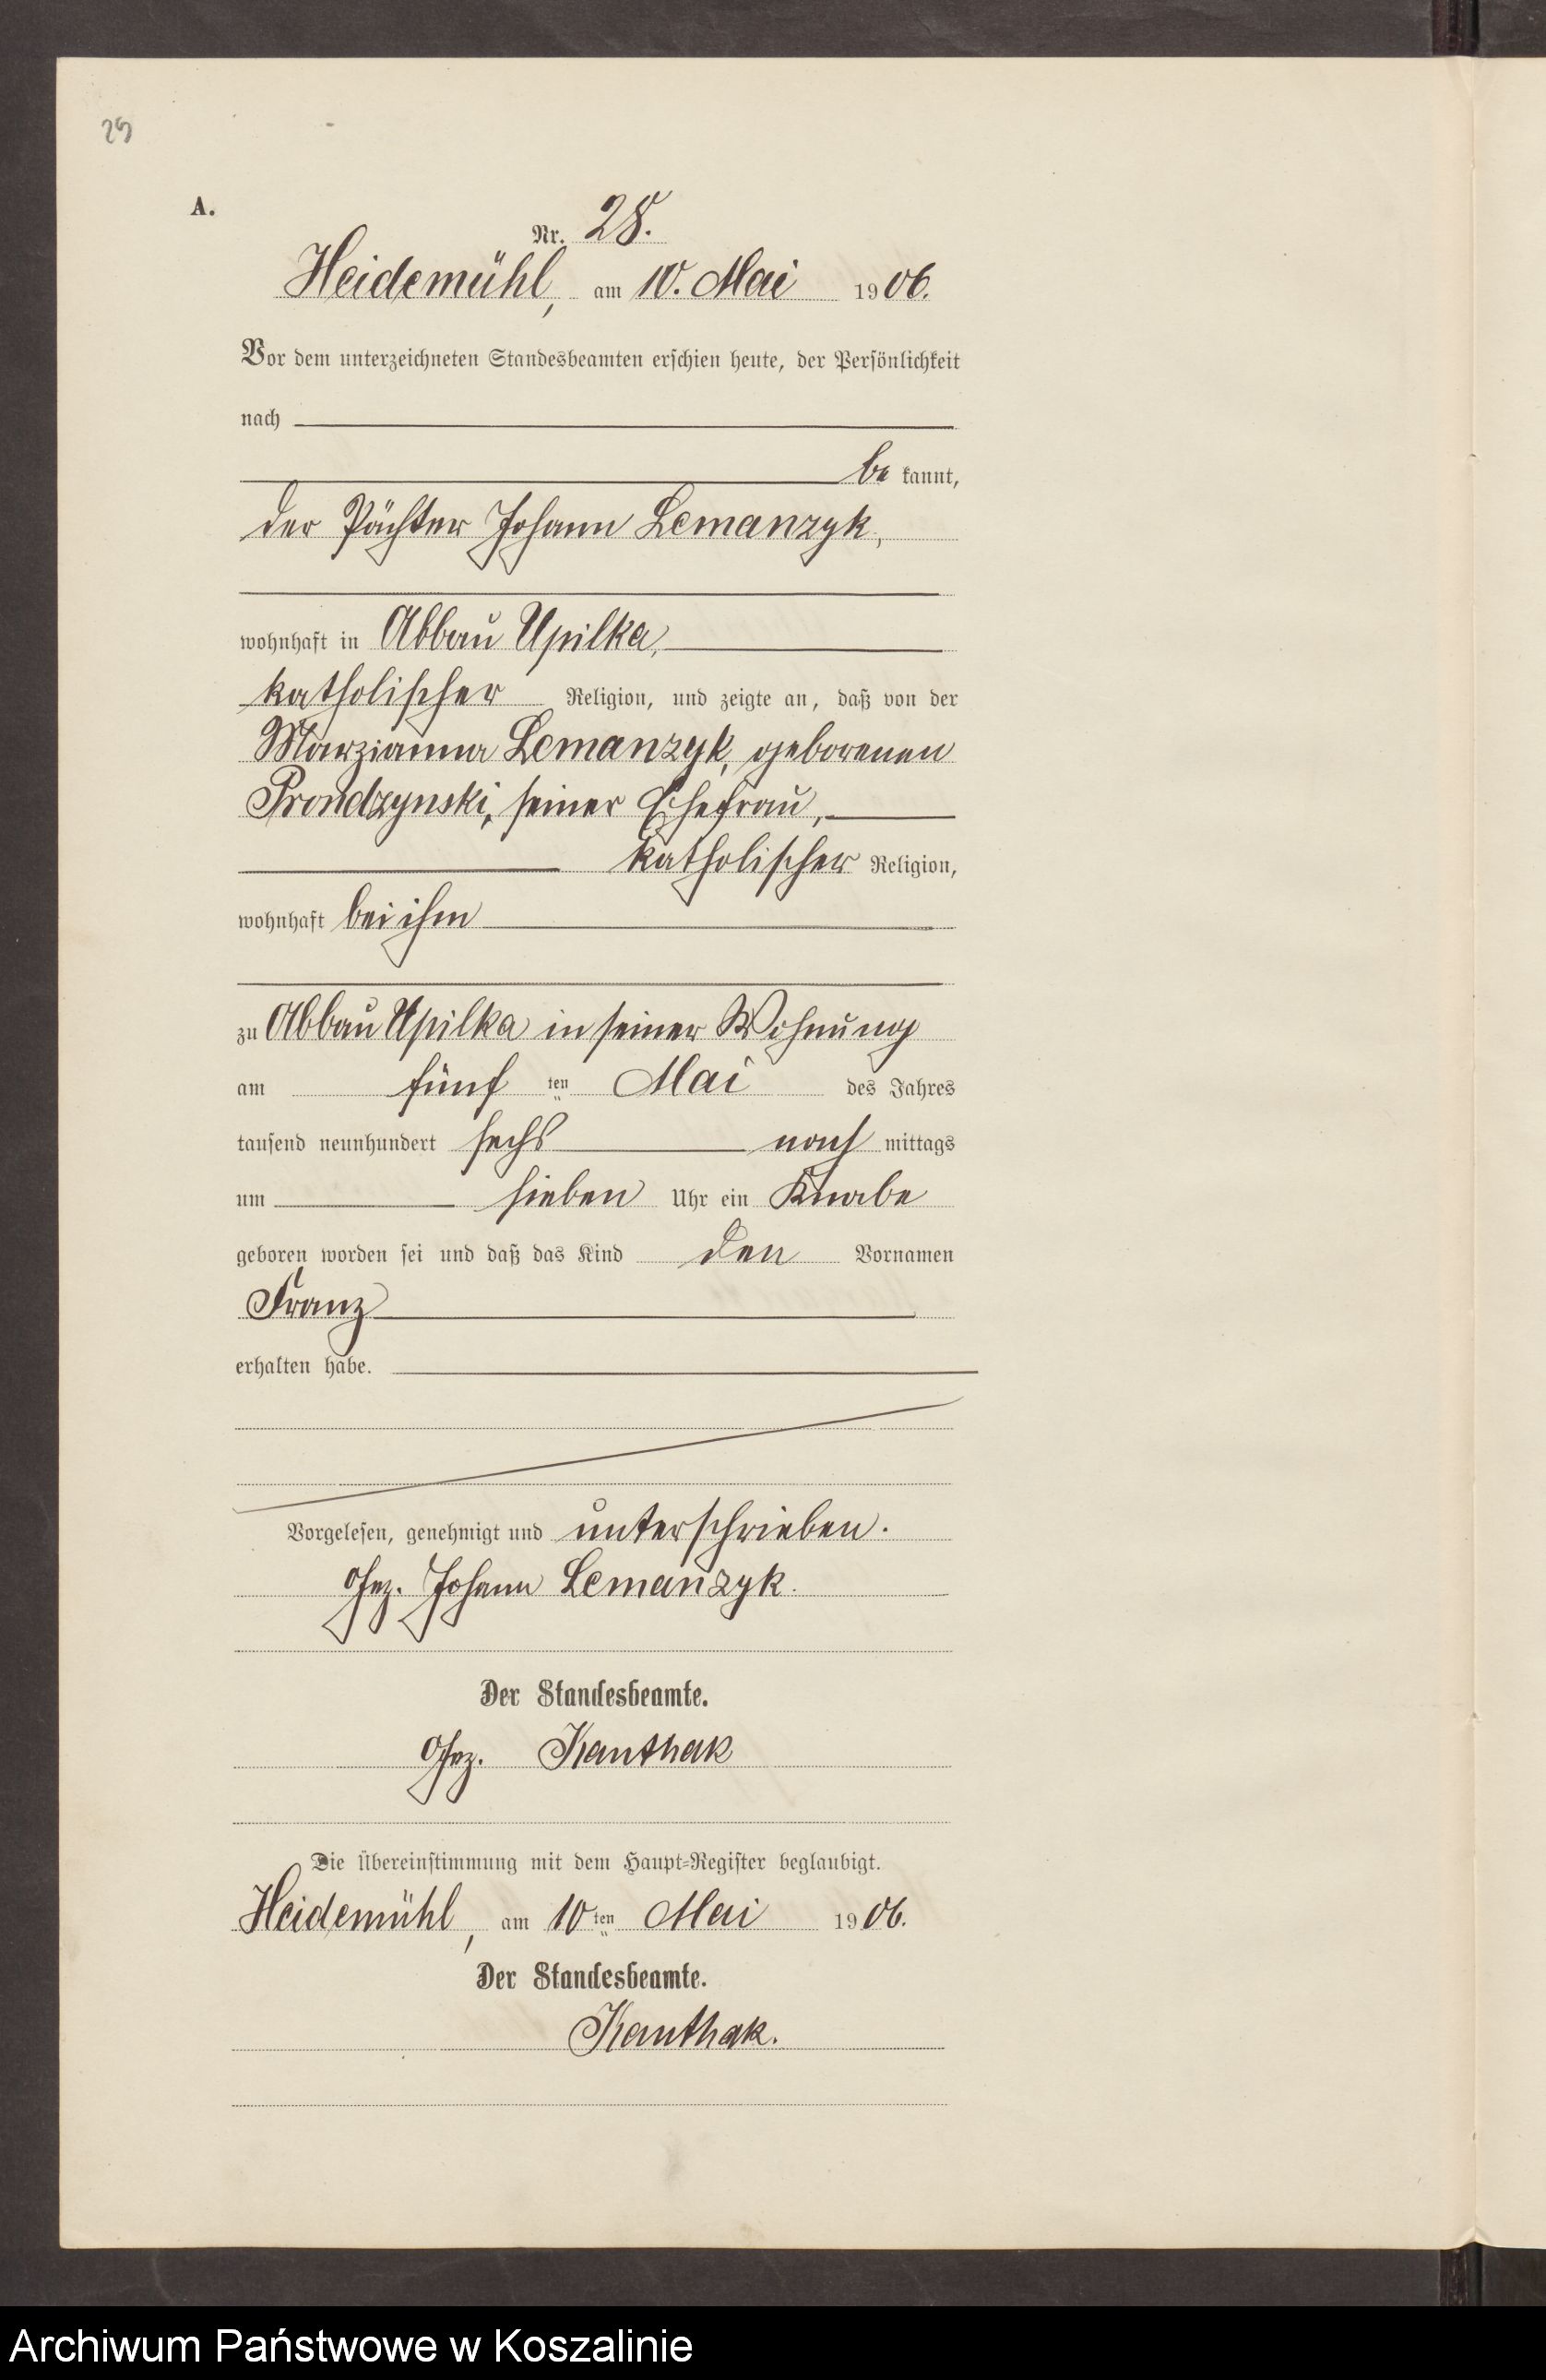 29
A.
Nr. 28.
Heidemühl, am 10. Mai 1906.
Vor dem unterzeichneten Standesbeamten erschien heute, der Persönlichkeit
nach
be kannt,
der Pächter Johann Lemanzyk,
wohnhaft in Abbau Upilka,
katholischer Religion, und zeigte an, daß von der
Marzianna Lemanzyk, geborenen
Prondzynski, seiner Ehefrau,
katholischer Religion,
wohnhaft bei ihm
zu Abbau Upilka in seiner Wohnung
am fünf ten Mai des Jahres
tausend neunhundert sechs nach mittags
um sieben Uhr ein Knabe
geboren worden sei und daß das Kind den Vornamen
Franz
erhalten habe.
Vorgelesen, genehmigt und unterschrieben.
Gez. Johann Lemańzyk.
Der Standesbeamte.
Gez. Kanthak
Die Übereinstimmung mit dem Haupt-Register beglaubigt.
Heidemühl, am 10ten Mai 1906.
Der Standesbeamte.
Kanthak.
Archiwum Państwowe w Koszalinie